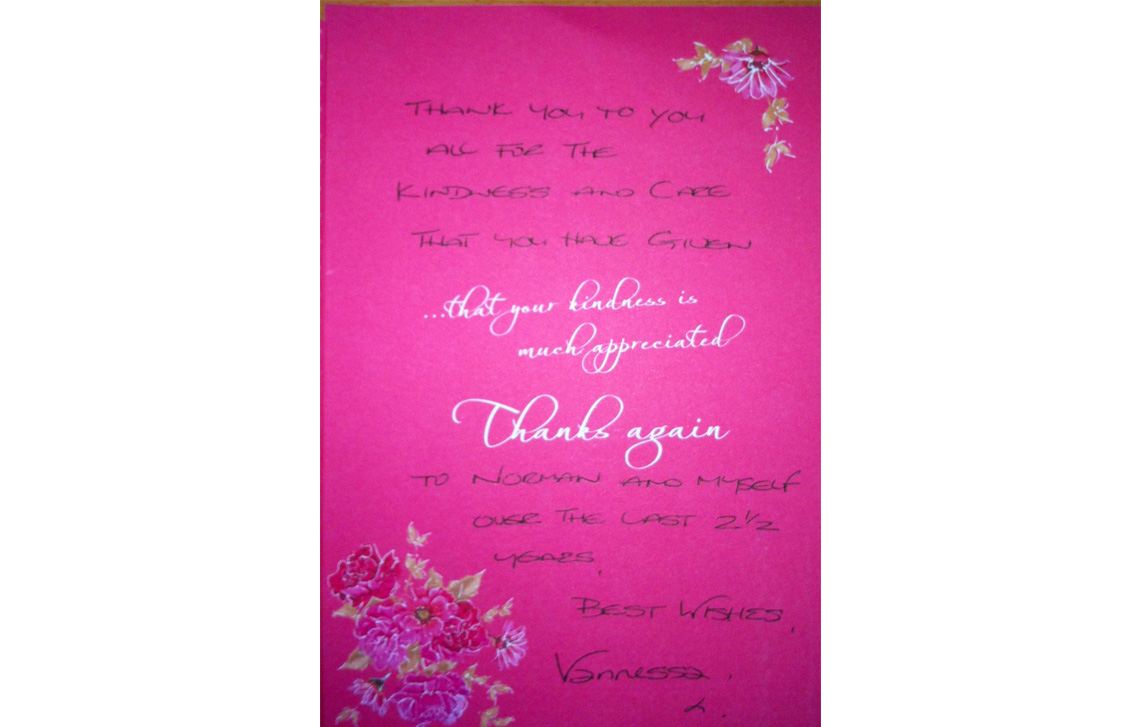 THANK YOU TO YOU
ALL FOR THE
KINDNESS AND CARE
THAT YOU HAVE GIVEN
...that your kindness is
much appreciated
Thanks again
TO NORMAN AND MYSELF
OVER THE LAST 2 1/2
YEARS,
BEST WISHES,
Vannessa.